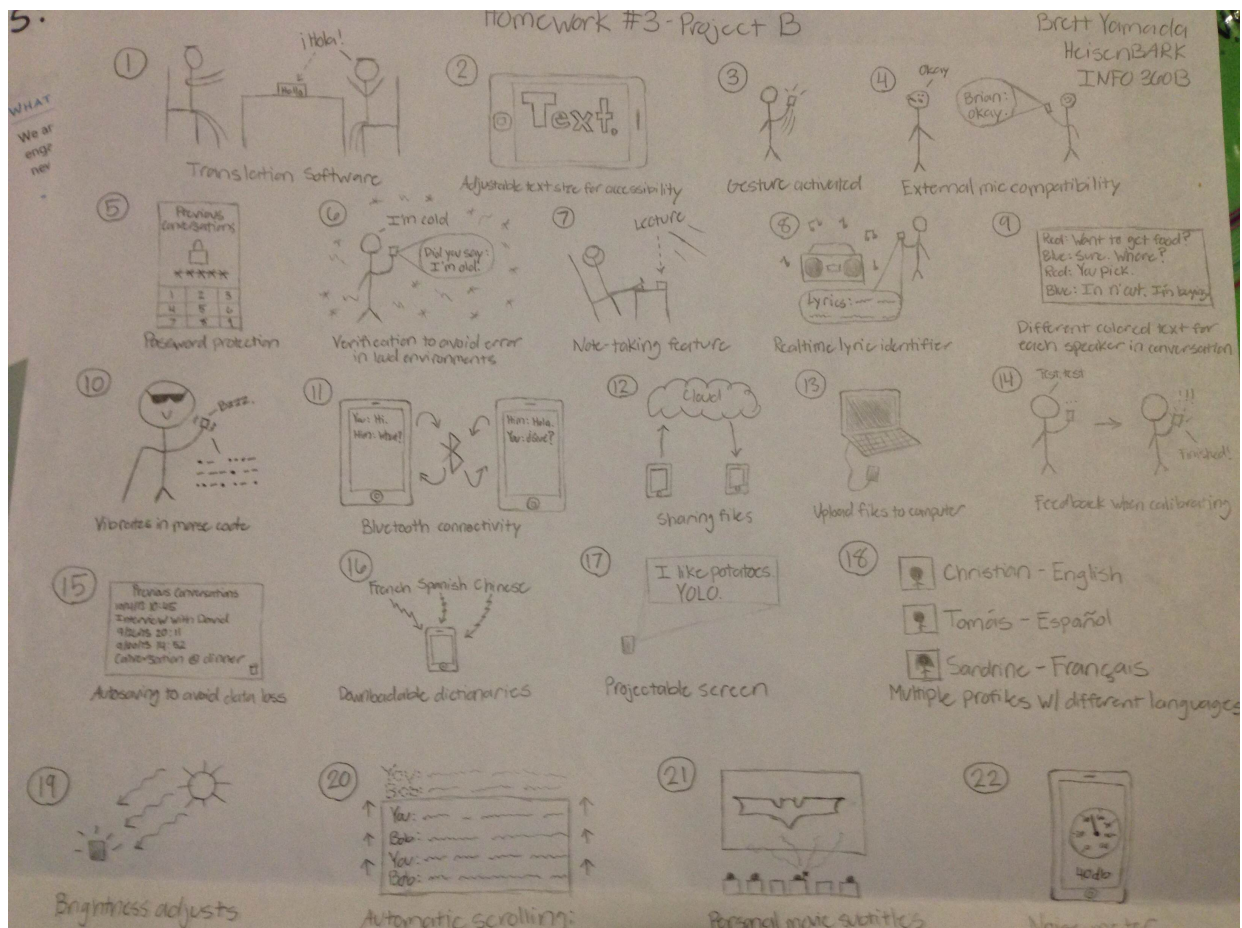 5.
Homework #3 - Project B
Brett Yamada
HeisenBARK
INFO 360B
WHAT
We ar
enge
nev
1
¡Hola!
Hello
Translation Software
2
Text.
Adjustable text size for accessibility
3
Gesture activated
4
Okay
Brian:
okay.
External mic compatibility
5
Previous
conversations
*****
1 2 3
4 5 6
7 8 9
Password protection
6
I'm cold
Did you say:
I'm old?
Verification to avoid error
in loud environments
7
Lecture
Note-taking feature
8
Lyrics:
Realtime lyric identifier
9
Red: Want to get food?
Blue: Sure. Where?
Red: You pick.
Blue: In n' out. I'm buying
Different colored text for
each speaker in conversation
10
Bzzz.
Vibrates in morse code
11
You: Hi.
Him: What?
Him: Hola.
You: ¿Qué?
Bluetooth connectivity
12
Cloud
Sharing files
13
Upload files to computer
14
Test, test
!!!
Finished!
Feedback when calibrating
15
Previous Conversations
Interview with David
20:11
Conversation @ dinner
Autosaving to avoid data loss
16
French Spanish Chinese
Downloadable dictionaries
17
I like potatoes.
YOLO.
Projectable screen
18
Christian - English
Tomás - Español
Sandrine - Français
Multiple profiles w/ different languages
19
Brightness adjusts
20
You:
Bob:
You:
Bob:
You:
Bob:
Automatic scrolling:
21
Personal movie subtitles
22
40db
Noise meter